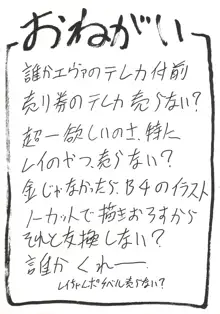 おねがい
誰かエヴァのテレカ付前
売り券のテレカ売らない?
超一欲しいのさ、特に
レイのやつ、売らない?
金じゃなかったら、B4のイラスト
ノーカットで描きおろすから
それと交換しない?
誰かくれー
売らない?